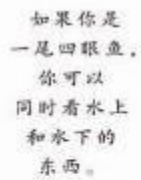 如果你是
一尾四眼鱼，
你可以
同时看水上
和水下的
东西。